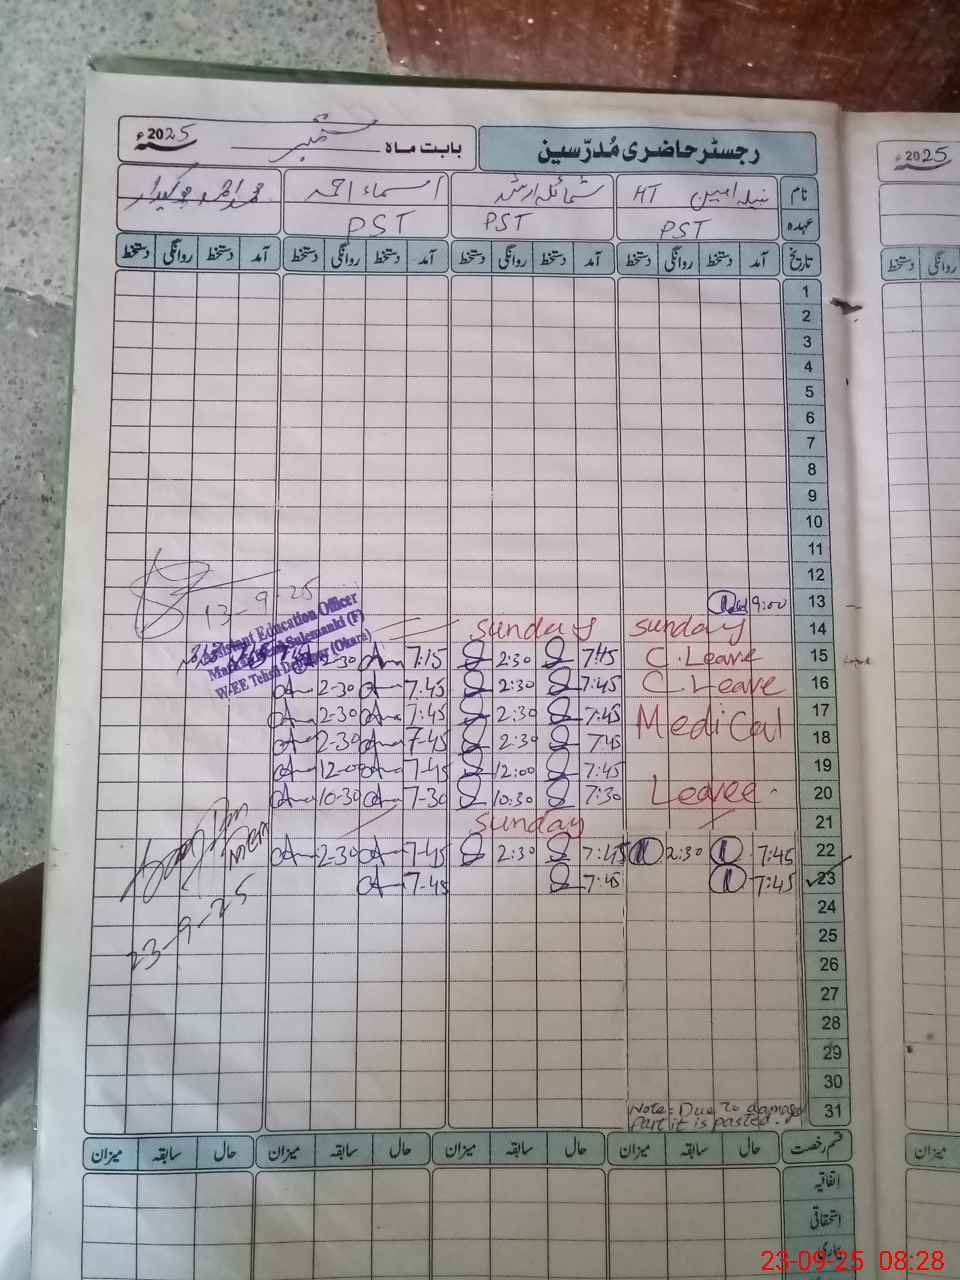 رجسٹر حاضری مُدرّسین بابت ماہ ستمبر 2025ء
2025ء
نام نبیلہ امین HT شمائلہ ارشد اسماء احمد
عہدہ PST PST PST
تاریخ آمد دستخط روانگی دستخط آمد دستخط روانگی دستخط آمد دستخط روانگی دستخط آمد دستخط روانگی دستخط
دستخط روانگی
1
2
3
4
5
6
7
8
9
10
11
12
13 9:00
13-9-25
Assistant Education Officer
(F)
W-EE Tehsil Depalpur (Okara)
14 sunday sunday
15 C.Leave 7:45 2:30 7:15 2-30
16 C.Leave 7:45 2:30 7.45 2-30
17 Medical 7:45 2:30 7:45 2-30
18 7:45 2:30 7-45 2-30
19 7:45 12:00 7-45 12-00
20 Leavee 7:30 10:30 7-30 10-30
21 sunday
22 7:45 2:30 7:45 2:30 7-45 2-30
23 7:45 7:45 7-45
23-9-25
24
25
26
27
28
29
30
31
Note: Due to damaged
Part it is pasted.
قسم رخصت حال سابقہ میزان حال سابقہ میزان حال سابقہ میزان حال سابقہ میزان
میزان
اتفاقیہ
استحقاقی
23-09-25 08:28